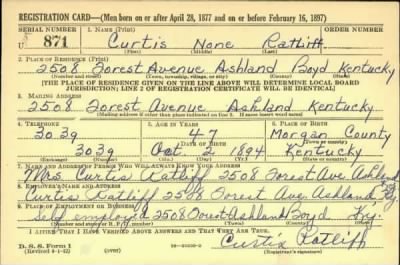 REGISTRATION CARD—(Men born on or after April 28, 1877 and on or before February 16, 1897)
SERIAL NUMBER 1. NAME (Print)
U 871 Curtis None Ratliff
(First) (Middle) (Last)
2. PLACE OF RESIDENCE (Print)
2508 Forest Avenue Ashland Boyd Kentucky
(Number and street) (Town, township, village, or city) (County) (State)
[THE PLACE OF RESIDENCE GIVEN ON THE LINE ABOVE WILL DETERMINE LOCAL BOARD
JURISDICTION; LINE 2 OF REGISTRATION CERTIFICATE WILL BE IDENTICAL]
3. MAILING ADDRESS
2508 Forest Avenue Ashland Kentucky
[Mailing address if other than place indicated on line 2. If same insert word same]
4. TELEPHONE 5. AGE IN YEARS 6. PLACE OF BIRTH
3039 47 Morgan County
DATE OF BIRTH (Town or county)
3039 Oct 2 1894 Kentucky
(Exchange) (Number) (Mo.) (Day) (Yr.) (State or country)
7. NAME AND ADDRESS OF PERSON WHO WILL ALWAYS KNOW YOUR ADDRESS
Mrs. Curtis Ratliff 2508 Forest Ave Ashland Ky.
8. EMPLOYER'S NAME AND ADDRESS
Curtis Ratliff 2508 Forest Ave. Ashland,
9. PLACE OF EMPLOYMENT OR BUSINESS
Self employed 2508 Forest Ashland Boyd Ky.
(Number and street or R. F. D. number) (Town) (County) (State)
I AFFIRM THAT I HAVE VERIFIED ABOVE ANSWERS AND THAT THEY ARE TRUE.
D. S. S. Form 1
(Revised 4-1-42)
Curtis Ratliff